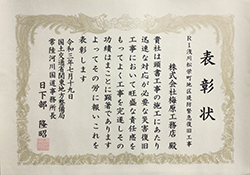 表彰状
R1浅川松栄町地区堤防緊急復旧工事
株式会社 梅原工務店 殿
貴社は頭書工事の施工にあたり
迅速な対応が必要な災害復旧
工事において旺盛な責任感を
もってよく工事を完遂しその
功績はまことに顕著であります
よってその労に報いこれを
表彰します
令和三年七月十九日
国土交通省関東地方整備局
常陸河川国道事務所長
日下部 隆昭